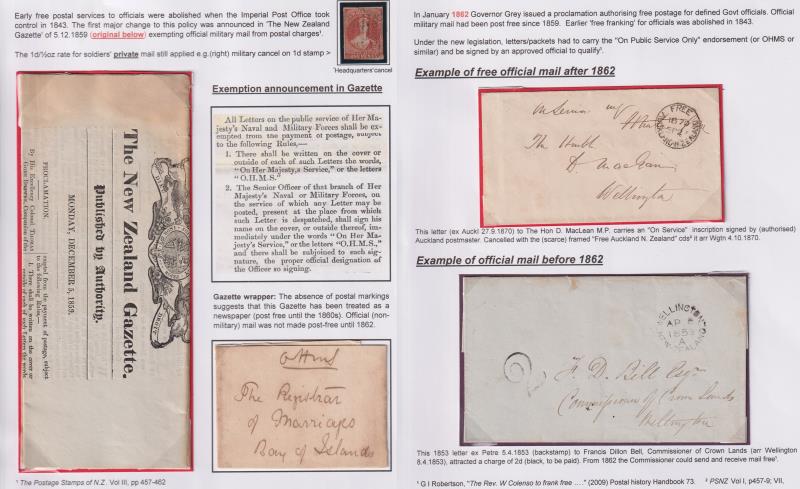 Early free postal services to officials were abolished when the Imperial Post Office took
control in 1843. The first major change to this policy was announced in 'The New Zealand
Gazette' of 5.12.1859 (original below) exempting official military mail from postal charges¹.
The 1d/½oz rate for soldiers' private mail still applied e.g.(right) military cancel on 1d stamp >
'Headquarters'cancel
The New Zealand Gazette.
Published by Authority.
MONDAY, DECEMBER 5, 1859.
PROCLAMATION.
By His Excellency Colonel THOMAS
GORE BROWNE, Companion of the
empted from the payment of postage, subject
to the following Rules,—
1. There shall be written on the cover or
outside of each of such Letters the words
DROIT
Exemption announcement in Gazette
All Letters on the public service of Her Ma-
jesty's Naval and Military Forces shall be ex-
empted from the payment of postage, subject
to the following Rules,—
1. There shall be written on the cover or
outside of each of such Letters the words,
"On Her Majesty,s Service," or the letters
"O.H.M.S."
2. The Senior Officer of that branch of Her
Majesty's Naval or Military Forces, on
the service of which any Letter may be
posted, present at the place from which
such Letter is despatched, shall sign his
name on the cover, or outside thereof, im-
mediately under the words "On Her Ma-
jesty's Service," or the letters "O.H.M.S.,"
and there shall be subjoined to such signa-
ture, the proper official designation of
the Officer so signing.
Gazette wrapper: The absence of postal markings
suggests that this Gazette has been treated as a
newspaper (post free until the 1860s). Official (non-
military) mail was not made post-free until 1862.
OHMS
The Registrar
of Marriages
Bay of Islands
¹ The Postage Stamps of N.Z. Vol III, pp 457-462
In January 1862 Governor Grey issued a proclamation authorising free postage for defined Govt officials. Official
military mail had been post free since 1859. Earlier 'free franking' for officials was abolished in 1843.
Under the new legislation, letters/packets had to carry the "On Public Service Only" endorsement (or OHMS or
similar) and be signed by an approved official to qualify¹.
Example of free official mail after 1862
On Service
FREE
The Honble
D. MacLean
Wellington
This letter (ex Auckl 27.9.1870) to The Hon D. MacLean M.P. carries an "On Service" inscription signed by (authorised)
Auckland postmaster. Cancelled with the (scarce) framed "Free Auckland N. Zealand" cds² it arr Wgtn 4.10.1870.
Example of official mail before 1862
WELLINGTON
AP 8
1853
A
NEW ZEALAND
2
F. D. Bell Esqre
Commissioner of Crown Lands
Wellington
This 1853 letter ex Petre 5.4.1853 (backstamp) to Francis Dillon Bell, Commissioner of Crown Lands (arr Wellington
8.4.1853), attracted a charge of 2d (black, to be paid). From 1862 the Commissioner could send and receive mail free¹.
¹ G I Robertson, "The Rev. W Colenso to frank free ...." (2009) Postal history Handbook 73. ² PSNZ Vol I, p457-9; VII,